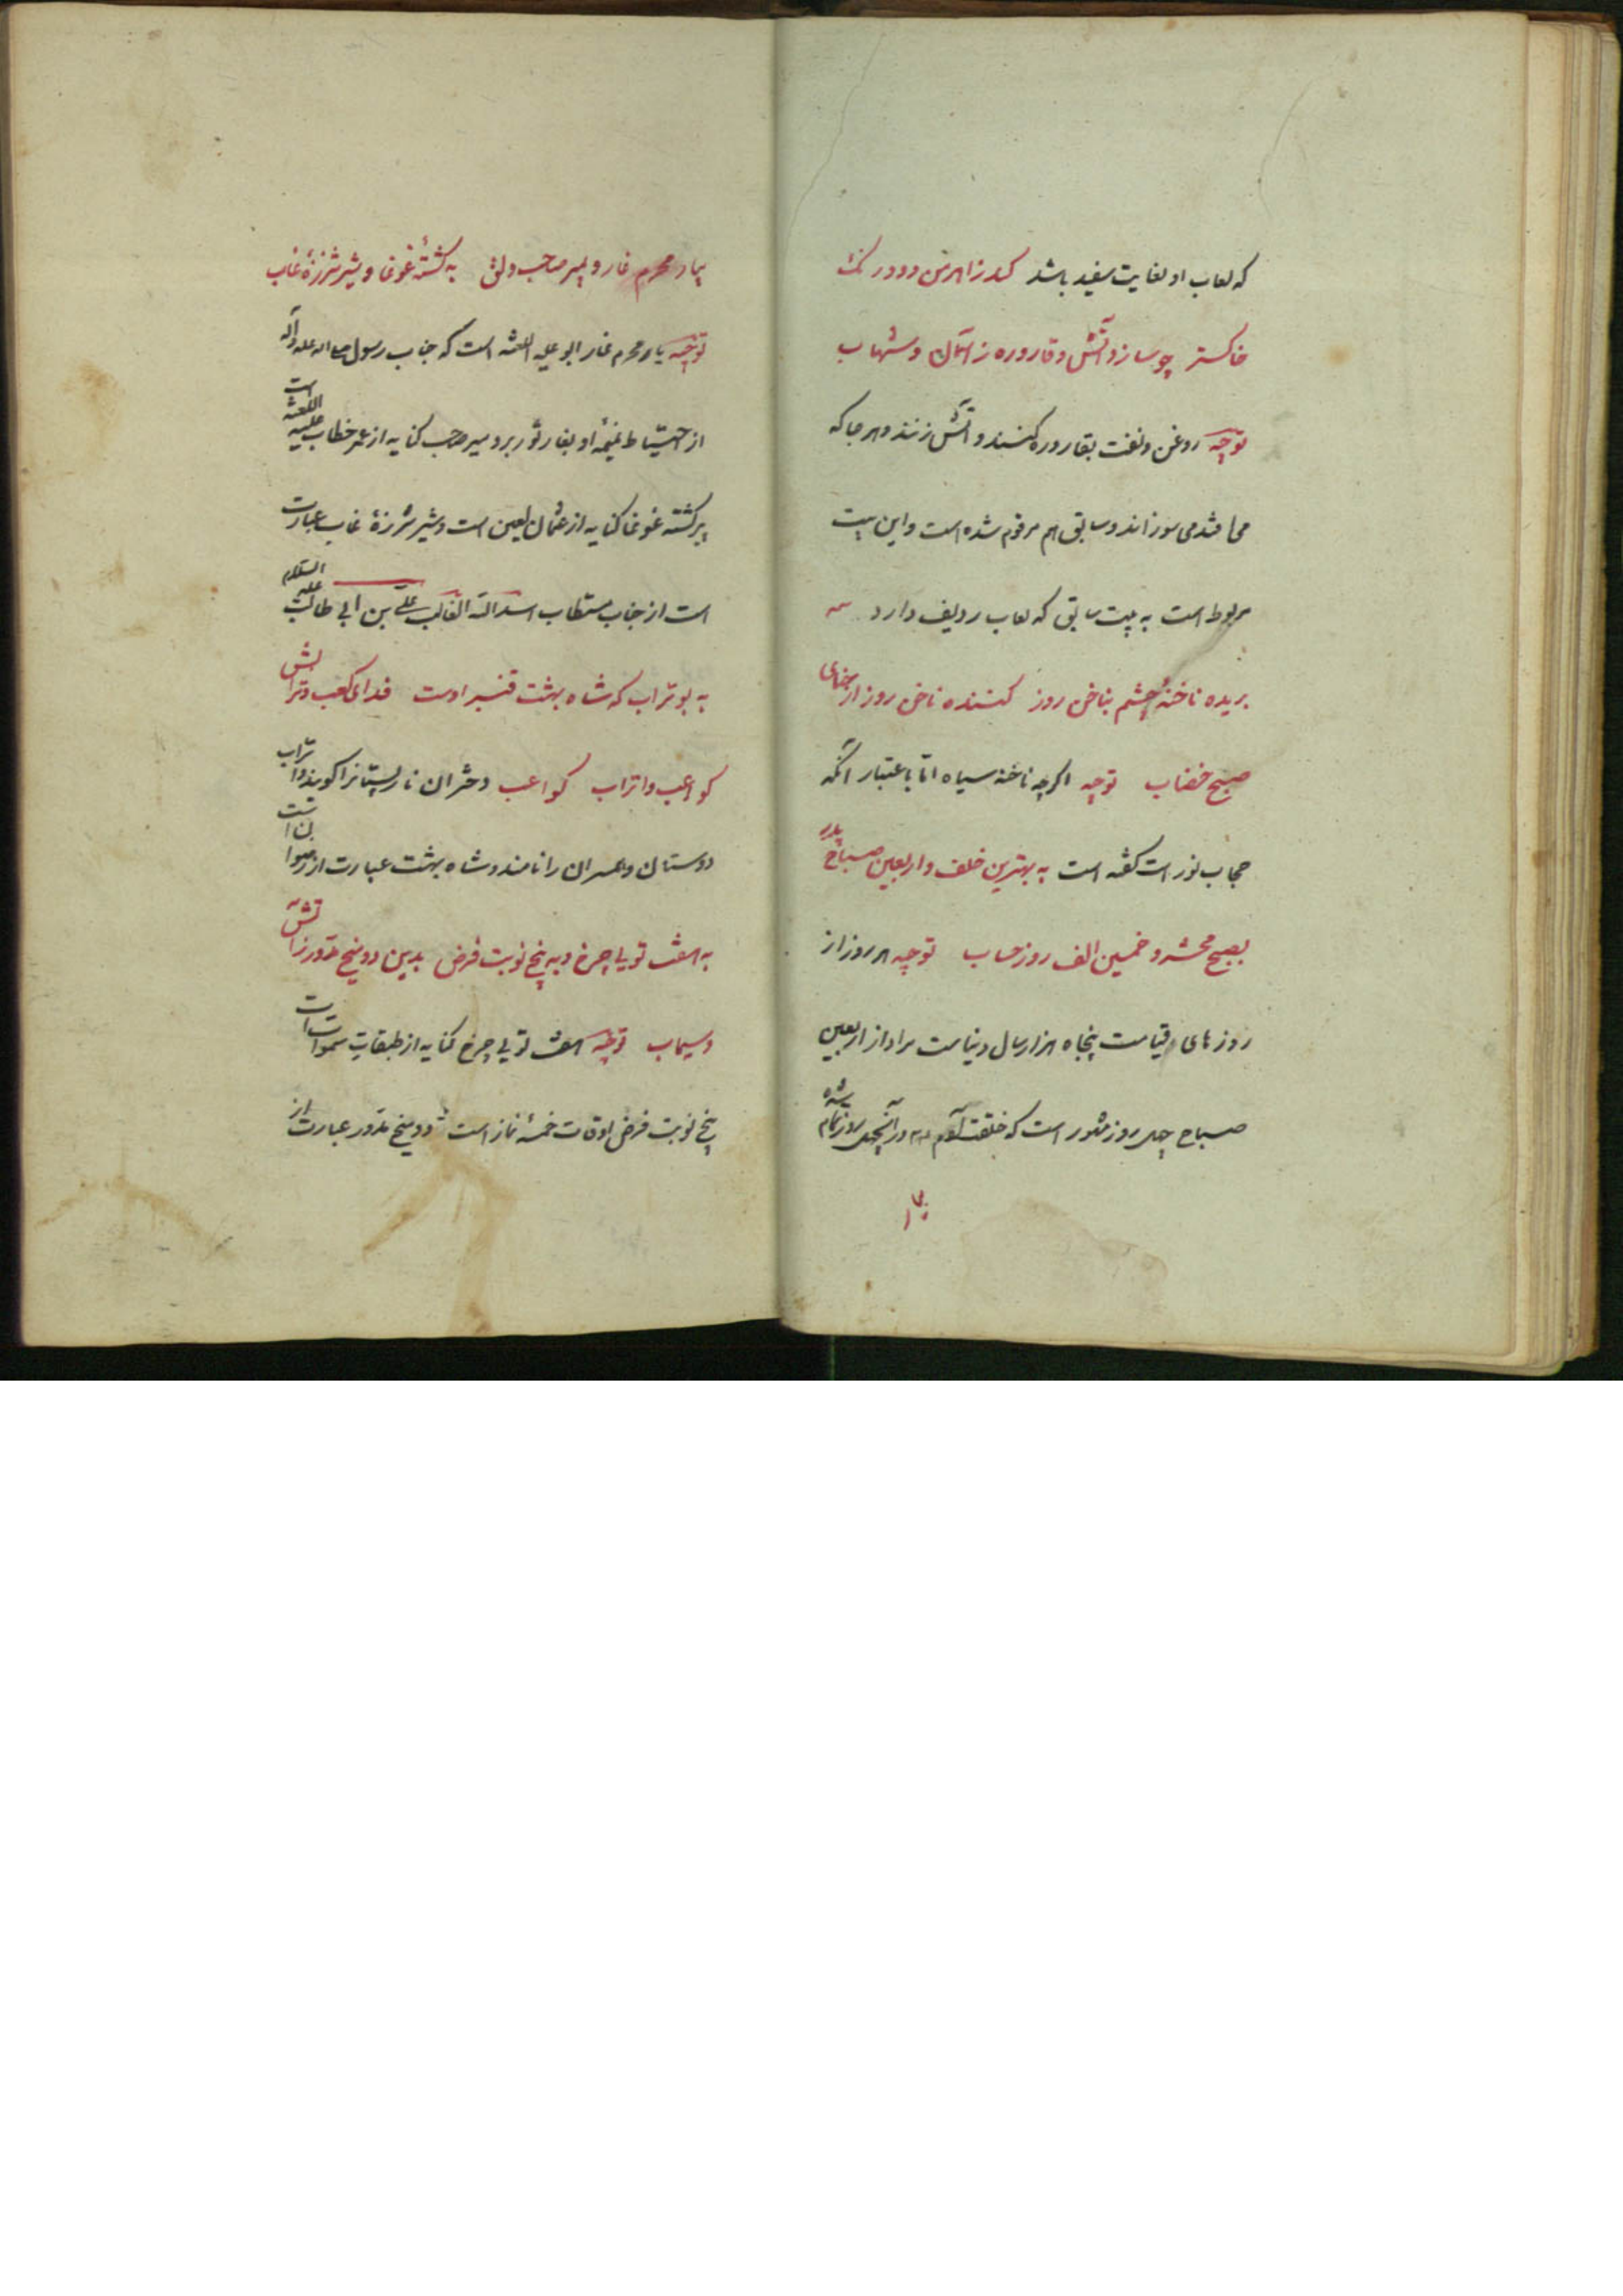 که لعاب او بغایت سفید باشد کند ز اهرمن دود رنک
خاکستر چو سازد آتش و قاروره ز آسمان و شهاب
توجیه روغن و نفت بقاروره کنند و آتش زنند و هر جا که
می افتد می سوزاند و سابق هم مرقوم شده است و این بیت
مربوط است به بیت سابق که لعاب ردیف دارد
بریده ناخنهٔ چشم بناخن روز کننده ناخن روز از حنای
صبح خضاب توجیه اکرچه ناخنه سیاه اما باعتبار آنکه
حجاب نور است کفته است به بهترین خلف و اربعین صباح پدر
بصبح محشر و خمسین الف روز حساب توجیه هر روز از
روزهای قیامت پنجاه هزار سال دنیاست مراد از اربعین
صباح چهل روز مشهور است که خلقت آدم در آنچهل روز تمام شده
بیار محرم غار و بمیر صاحب دلق به کشتهٔ غوغا و بشیر شرزهٔ غاب
توجیه یار محرم غار ابو علیه اللعنه است که جناب رسول صلی الله علیه وآله
از احتیاط او بغار ثور برد و میر صاحب کنایه از عمر خطاب علیه اللعنه است
پیر کشته غوغا کنایه از عثمان لعین است و شیر شرزهٔ غاب عبارت
است از جناب مستطاب اسد الله الغالب علی بن ابی طالب علیه السلام
به بو تراب که شاه بهشت قنبر اوست فدای کعب و ترابش
کواعب و اتراب کواعب دختران نارپستانرا کویند و اتراب
دوستان و همسران را نامند و شاه بهشت عبارت از رضوان است
به هفت تویی چرخ و به پنج نوبت فرض بدین دو میخ مدور ز آتش
و سیماب توجیه هفت تویی چرخ کنایه از طبقات سموات است
پنج نوبت فرض اوقات خمسهٔ نماز است و دو میخ مدور عبارت از